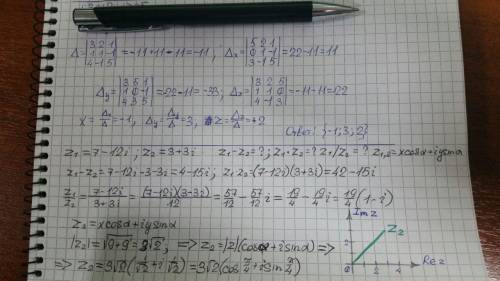 Δ = |3 2 1; 1 1 -1; 4 -1 5| = -11+11-11 = -11; Δₓ = |5 2 1; 0 1 -1; 3 -1 5| = 22-11 = 11
Δᵧ = |3 5 1; 1 0 -1; 4 3 5| = -22-11 = -33; Δ₂ = |3 2 5; 1 1 0; 4 -1 3| = -11-11 = -22
x = Δₓ/Δ = -1, Δᵧ = Δᵧ/Δ = 3, z = Δ₂/Δ = +2
Ответ: {-1; 3; 2}
z₁ = 7-12i; z₂ = 3+3i z₁-z₂ = ?; z₁·z₂ = ? z₁/z₂ = ? z₁,₂ = xcosα+iysinα
z₁-z₂ = 7-12i-3-3i = 4-15i; z₁·z₂ = (7-12i)(3+3i) = 42-15i
z₁/z₂ = (7-12i)/(3+3i) = (7-12i)(3-3i)/12 = 57/12 - 57/12 i = 19/4 - 19/4 i = 19/4 (1-i)
z₂ = xcosα+iysinα
|z₂| = √9+9 = 3√2; => z₂ = |z|(cosα+isinα) =>
=> z₂ = 3√2(1/√2+i 1/√2) = 3√2(cos π/4 + i sin π/4)
Im z
z₂
2
0 2 4 Re z